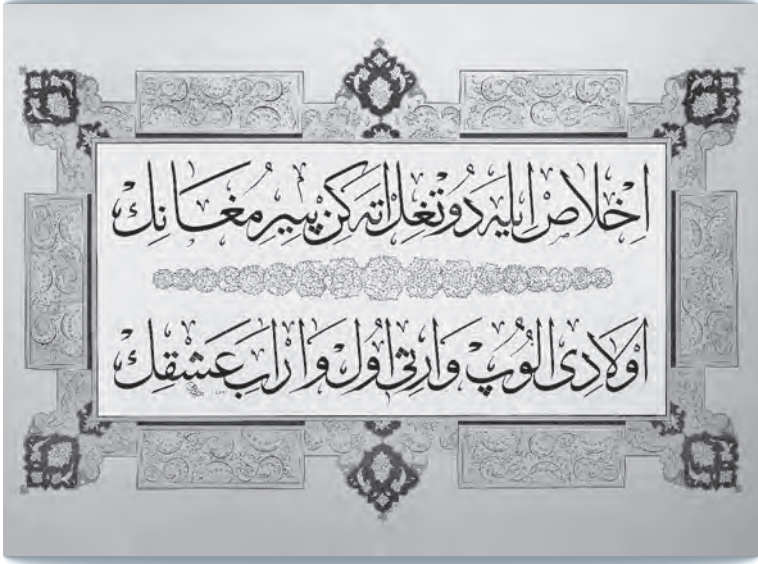 اِخلاص ايله دُوتغل اتهكن پيرِ مُغانك
اولادى الوُپ وارثى اوُل وار ابِ عشقك